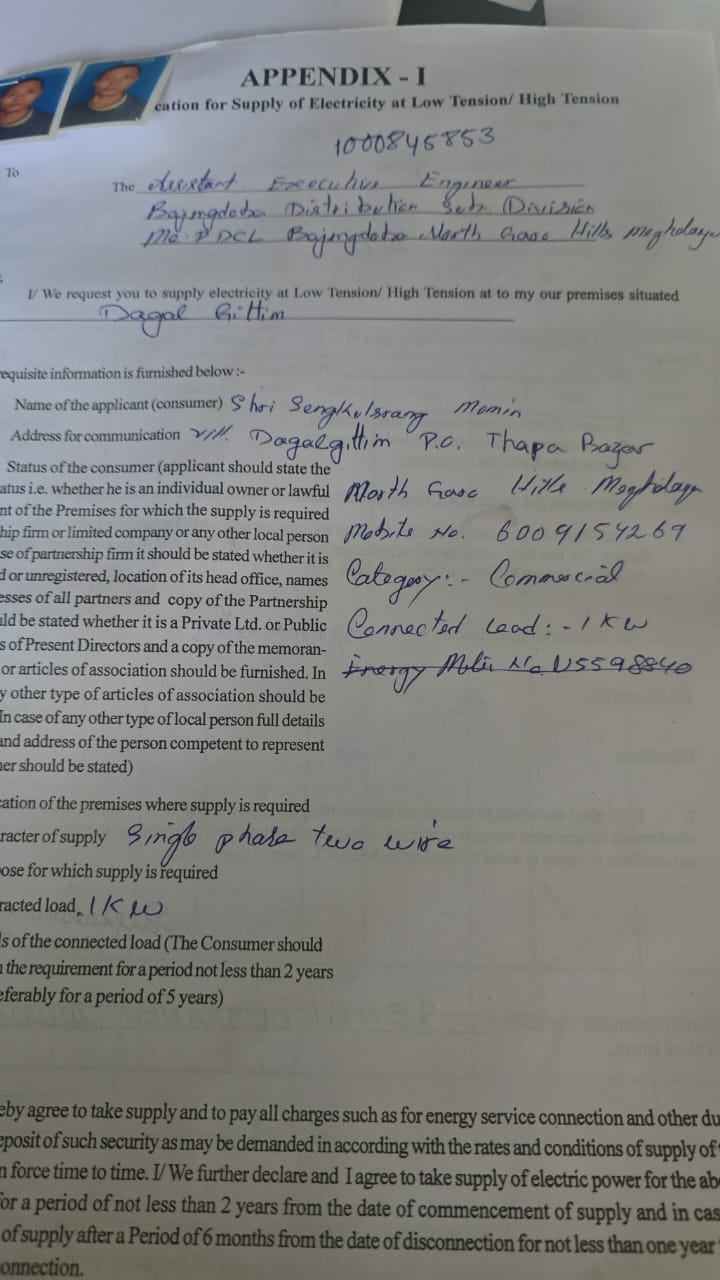 APPENDIX - I
cation for Supply of Electricity at Low Tension/ High Tension
1000845853
To
The Assistant Executive Engineer
Bajengdoba Distribution Sub Division
Me.PDCL Bajengdoba North Garo Hills Meghalaya
I/ We request you to supply electricity at Low Tension/ High Tension at to my our premises situated
Dagal Gittim
requisite information is furnished below :-
Name of the applicant (consumer) Shri Sengkulsrang Momin
Address for communication Vill. Dagalgittim P.O. Thapa Bazar
Status of the consumer (applicant should state the
atus i.e. whether he is an individual owner or lawful North Garo Hills Meghalaya
nt of the Premises for which the supply is required
hip firm or limited company or any other local person Mobile No. 6009154269
se of partnership firm it should be stated whether it is
d or unregistered, location of its head office, names Category:- Commercial
esses of all partners and copy of the Partnership
uld be stated whether it is a Private Ltd. or Public Connected Load:- 1 KW
s of Present Directors and a copy of the memoran-
or articles of association should be furnished. In Energy Meter No. U5598840
y other type of articles of association should be
In case of any other type of local person full details
and address of the person competent to represent
ner should be stated)
cation of the premises where supply is required
racter of supply Single phase two wire
ose for which supply is required
racted load. 1 KW
ls of the connected load (The Consumer should
n the requirement for a period not less than 2 years
eferably for a period of 5 years)
eby agree to take supply and to pay all charges such as for energy service connection and other du
eposit of such security as may be demanded in according with the rates and conditions of supply of
n force time to time. I/ We further declare and I agree to take supply of electric power for the ab
for a period of not less than 2 years from the date of commencement of supply and in cas
of supply after a Period of 6 months from the date of disconnection for not less than one year
onnection.